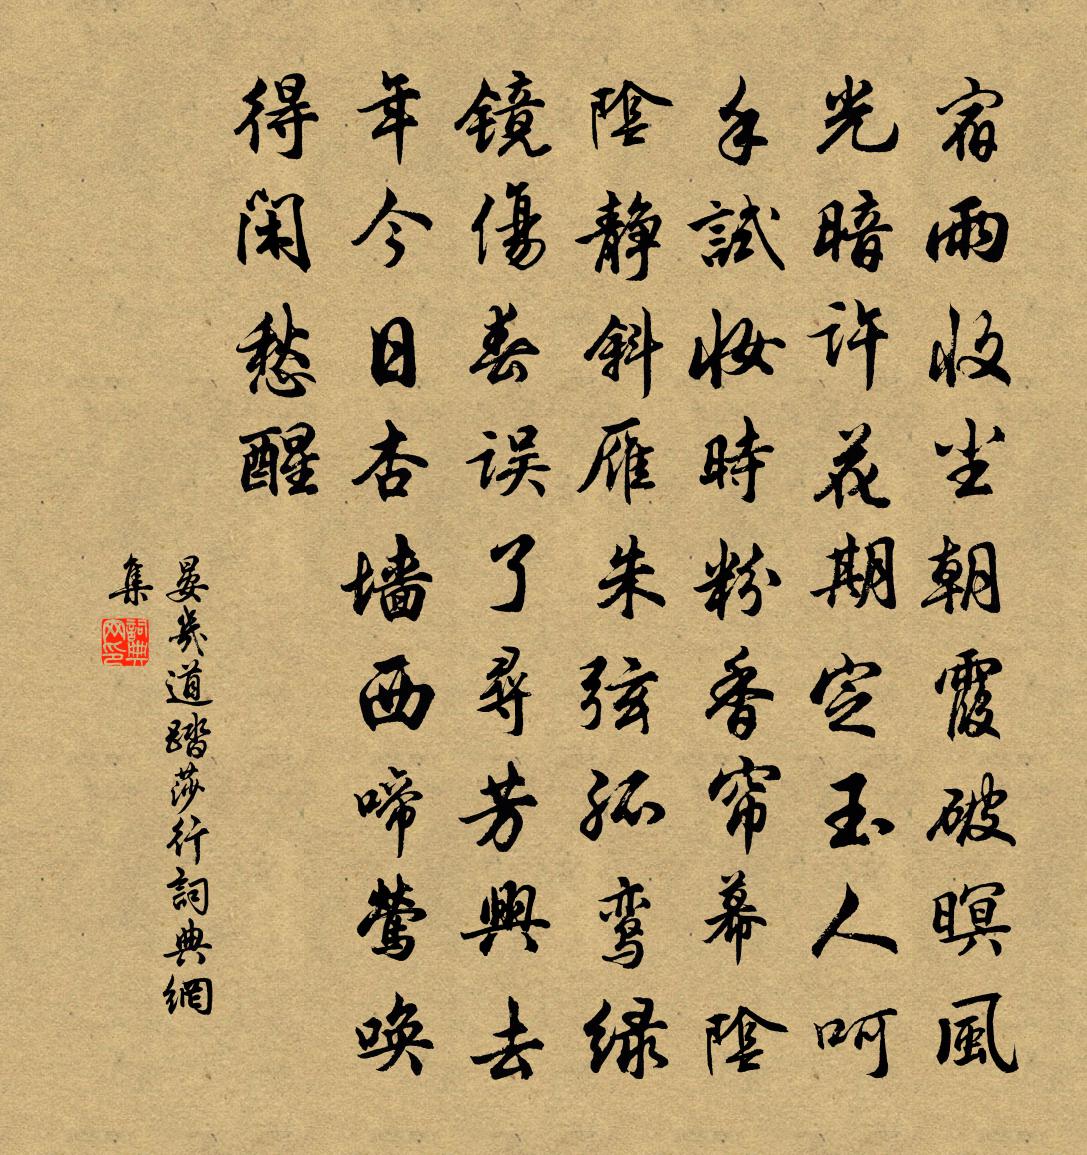 宿雨收尘朝霞破暝風
光暗许花期定玉人呵
手試妆時粉香帘幕陰
陰静斜雁朱弦孤鸾绿
镜傷春误了尋芳興去
年今日杏墙西啼鶯唤
得闲愁醒
晏幾道踏莎行詞典網
集
詞典
网印